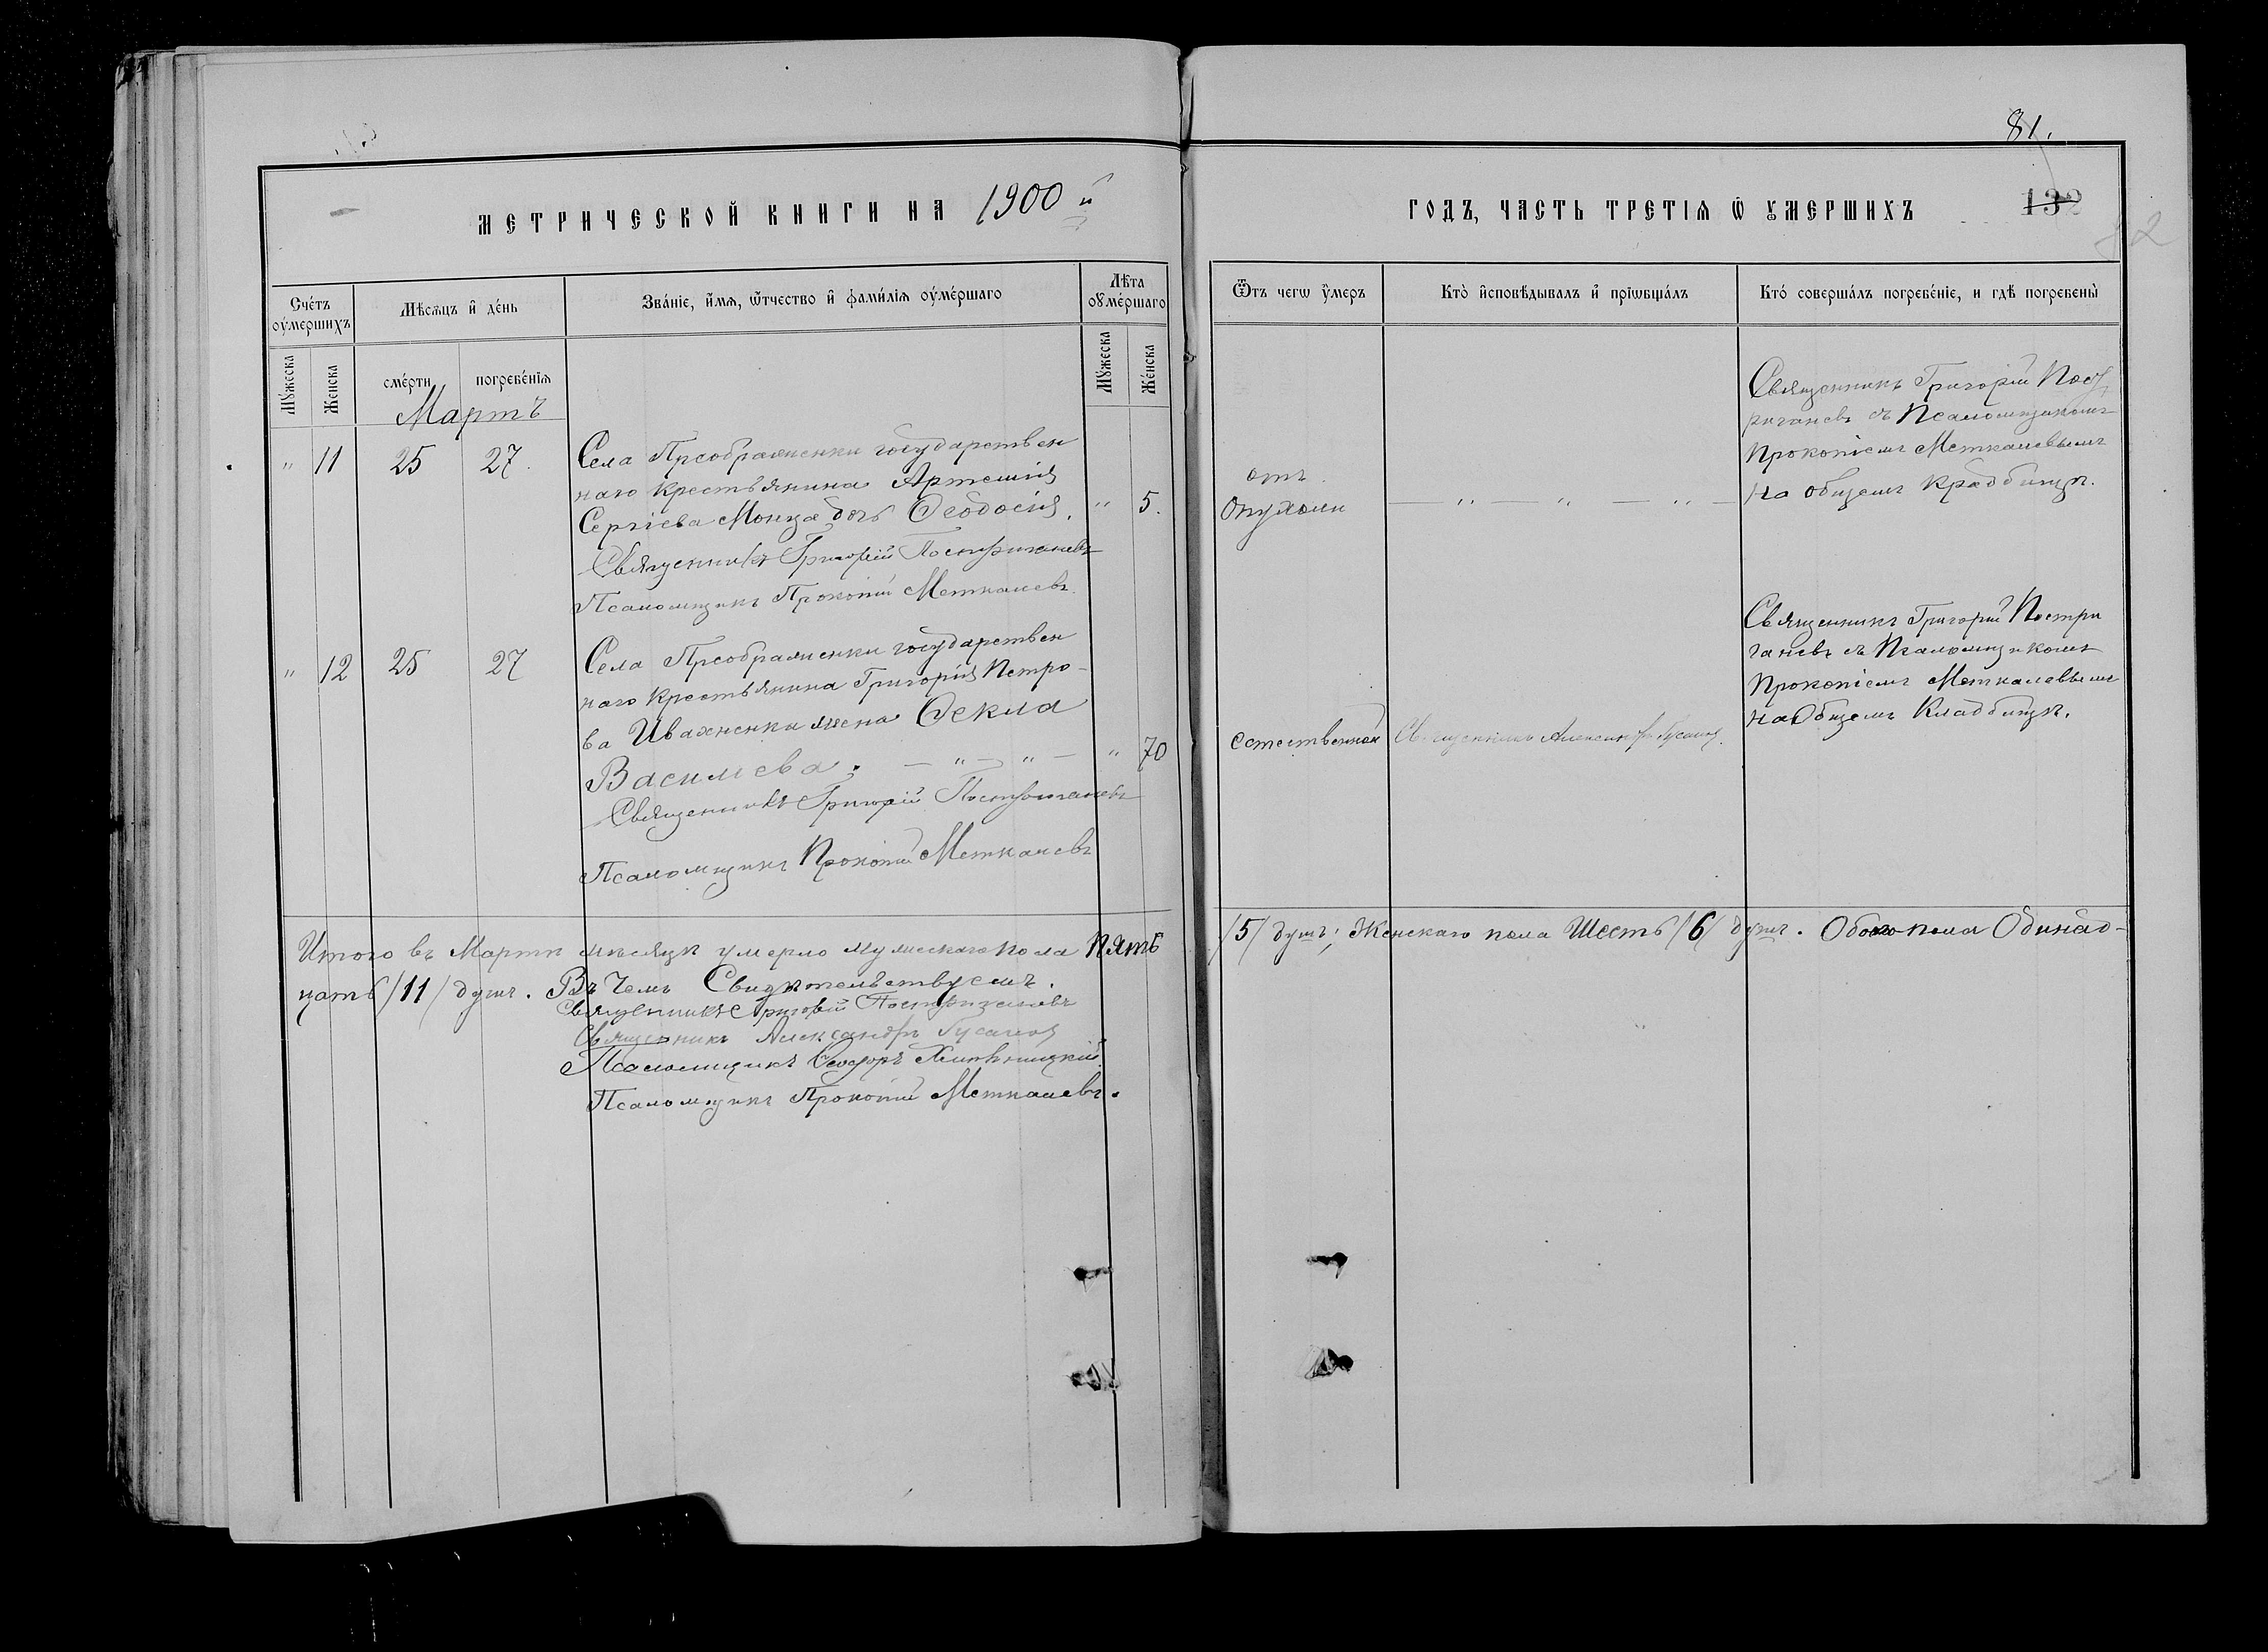 81.
МЕТРИЧЕСКОЙ КНИГИ НА 1900 й
ГОДЪ, ЧАСТЬ ТРЕТІѦ Ѿ ꙊМЕРШИХЪ
132
82
Сче́тъ оу҆ме́ршихъ
Мѣ́сѧцъ и҆ де́нь
Зва́ніе, и҆́мѧ, ѿ́тчество и҆ фами́лїѧ оу҆ме́ршаго
Лѣ́та оу҆ме́ршаго
Ѿтъ чегѡ ᲂу҆́меръ
Кто̀ и҆сповѣ́дывалъ и҆ прїѡбща́лъ
Кто́ соверша́лъ погребе́ніе, и гдѣ̀ погребены̀
Мꙋ́жеска
Же́нска
сме́рти
погребе́нїѧ
Мꙋ́жеска
Же́нска
Мартъ
" 11 25 27.
Села Преображенки государствен
наго крестьянина Артемія
Сергіева Монца дочь Ѳеодосія.
" 5.
Священникъ Григорій Постригачевъ
Псаломщикъ Прокопій Меткалевъ.
отъ
Опухоли
— " — " — " —
Священникъ Григорій Пост
ригачевъ съ Псаломщикомъ
Прокопіемъ Меткалевымъ
На общемъ Кладбищѣ.
" 12 25 27
Села Преображенки государствен
наго крестьянина Григорія Петро-
ва Ивахненки жена Ѳекла
Васильева. — " — " —
" 70
Священникъ Григорій Постригачевъ
Псаломщикъ Прокопій Меткалевъ
естественной
Священникъ Александръ Гусаков
Священникъ Григорій Постри
гачевъ съ Псаломщикомъ
Прокопіемъ Меткалевымъ
на Общемъ Кладбищѣ.
Итого въ Мартѣ мѣсяцѣ умерло мужескаго пола Пять
/5/ душъ; Женскаго пола Шесть /6/ душъ. Обоего пола Одинад-
цать /11/ душъ. Въ Чемъ Свидѣтельствуемъ.
Священникъ Григорій Постригачевъ
Священникъ Александръ Гусаков
Псаломщикъ Ѳеодоръ
Псаломщикъ Прокопій Меткалевъ.